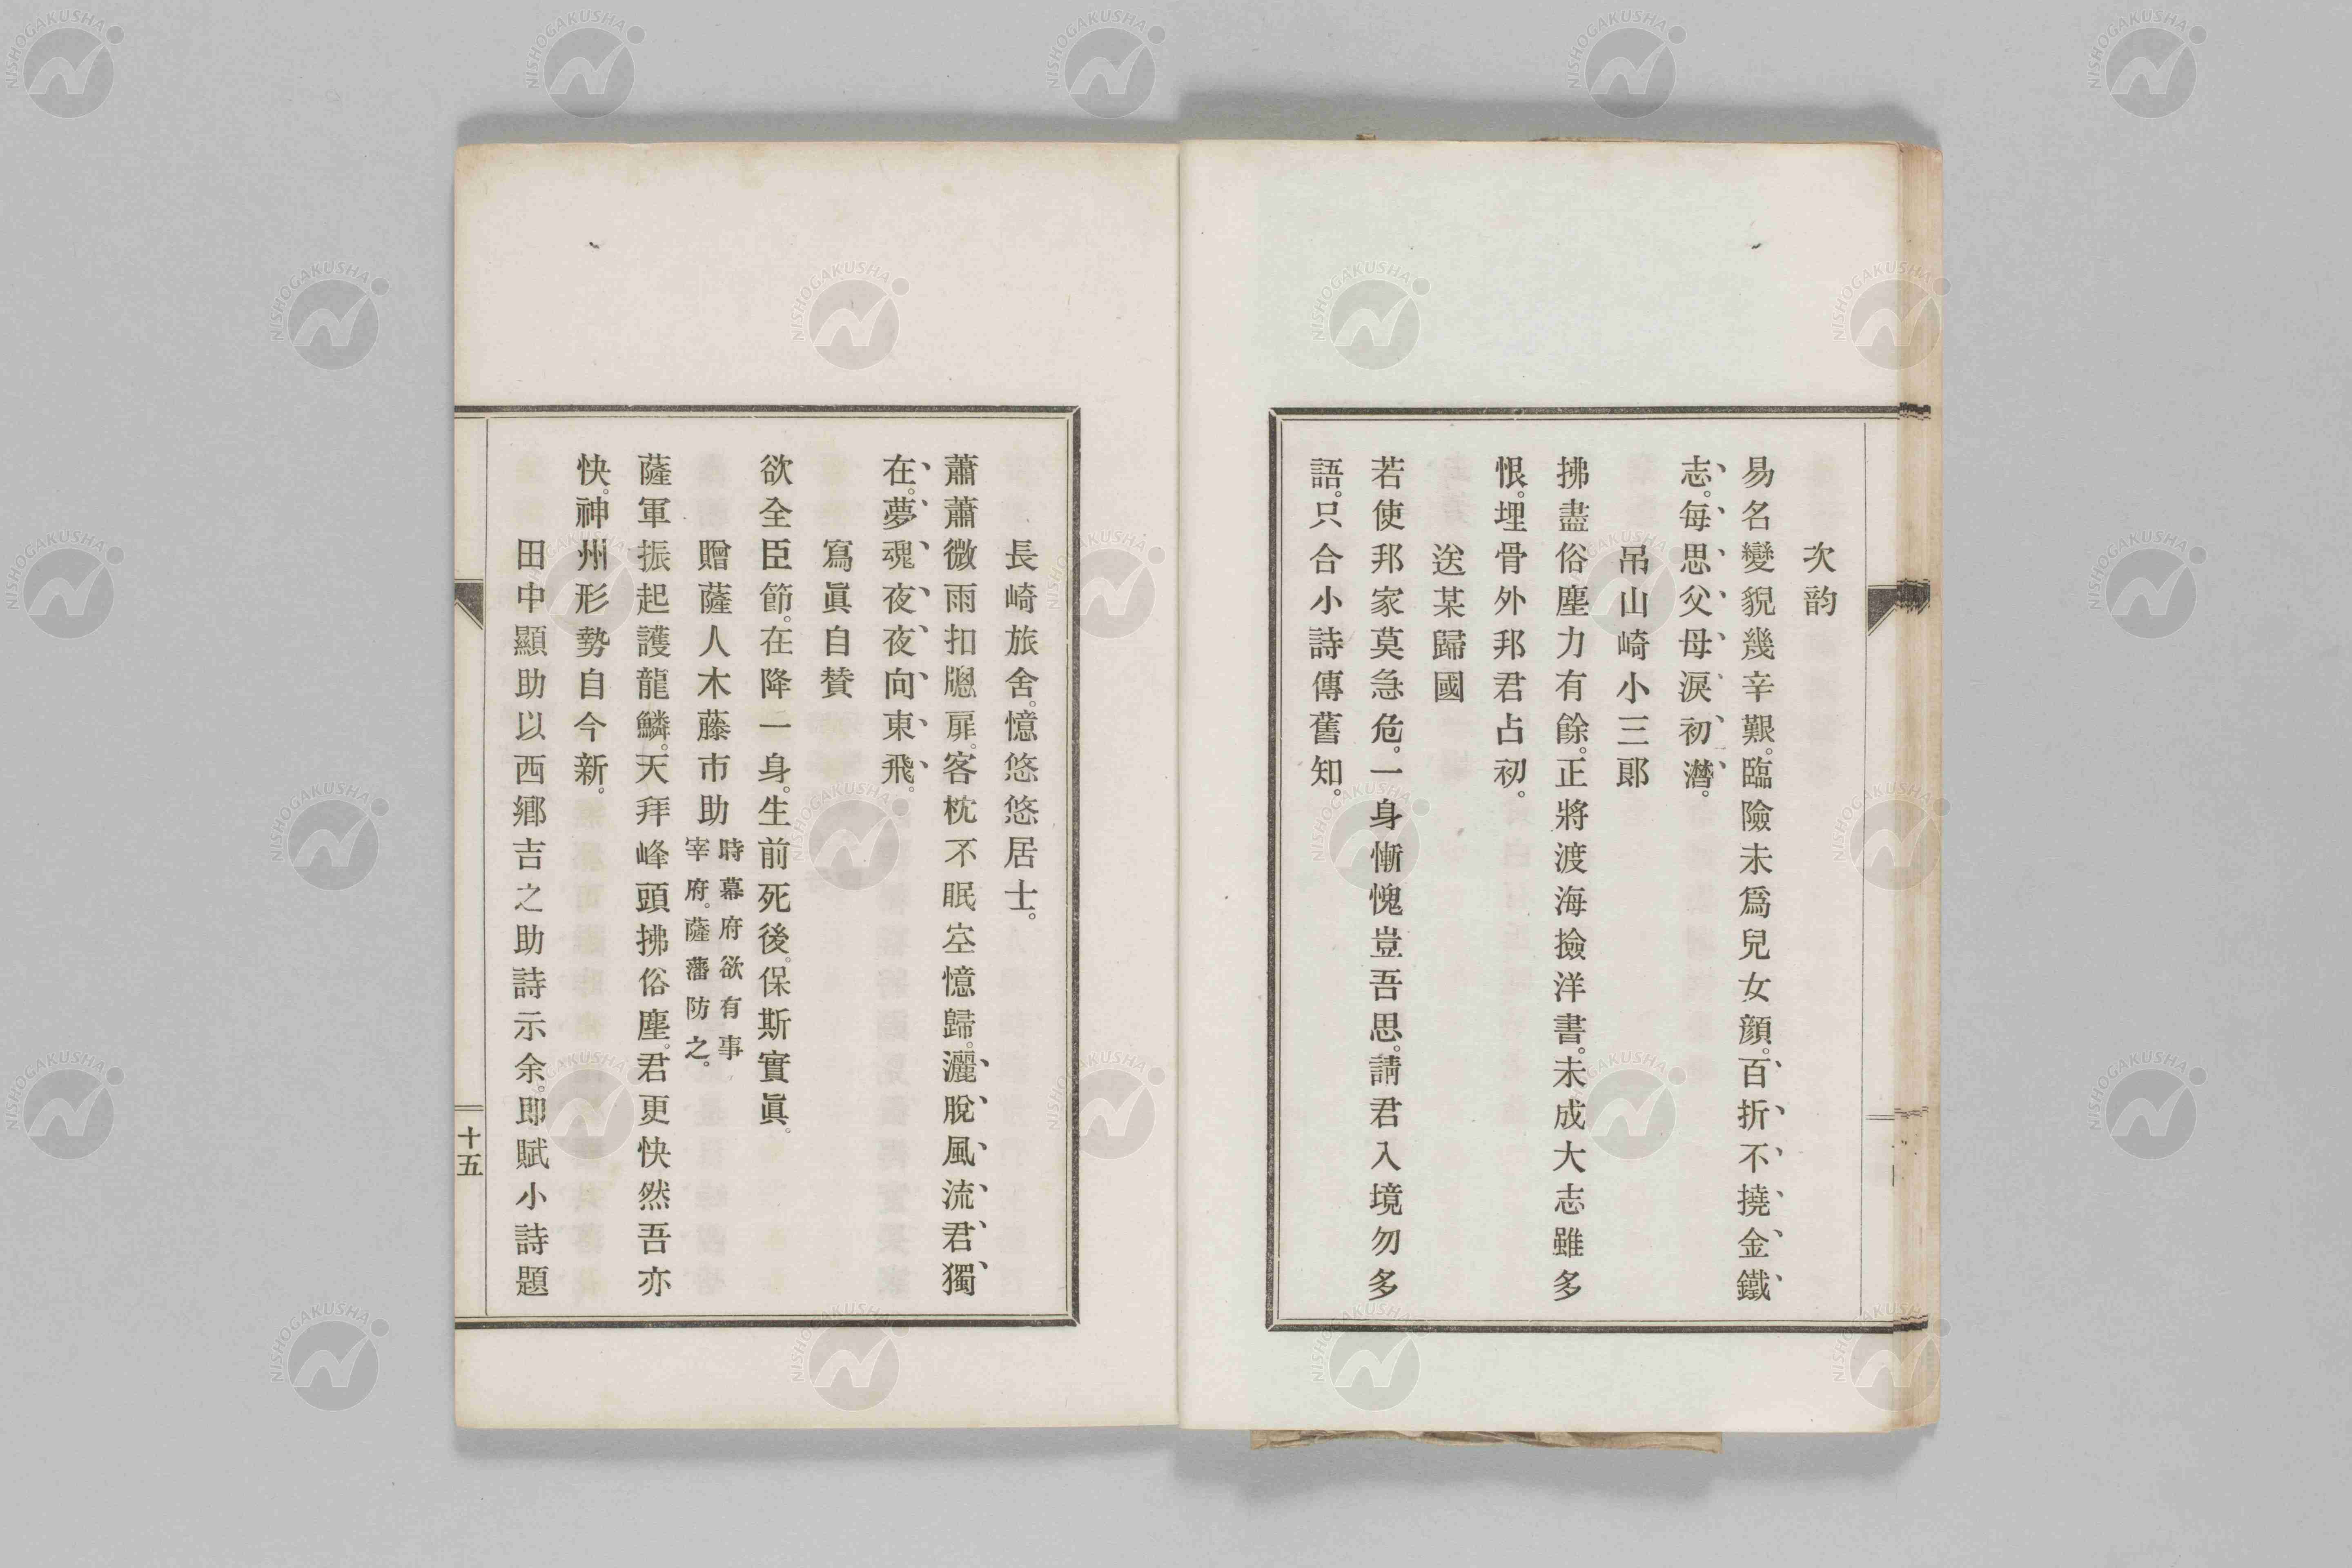 次韵
易名變貌幾辛艱。臨險未爲兒女顔。百折不撓金鐵
志。每思父母淚初潸。
吊山崎小三郞
拂盡俗塵力有餘。正將渡海撿洋書。未成大志雖多
恨。埋骨外邦君占初。
送某歸國
若使邦家莫急危。一身慚愧豈吾思。請君入境勿多
語。只合小詩傳舊知。
長崎旅舍。憶悠悠居士。
蕭蕭微雨扣牕扉。客枕不眠空憶歸。灑脫風流君獨
在。夢魂夜夜向東飛。
寫眞自贊
欲全臣節。在降一身。生前死後。保斯實眞。
贈薩人木藤市助 時幕府欲有事
宰府。薩藩防之。
薩軍振起護龍鱗。天拜峰頭拂俗塵。君更快然吾亦
快。神州形勢自今新。
田中顯助以西鄕吉之助詩示余。即賦小詩題
十五
NISHOGAKUSHA